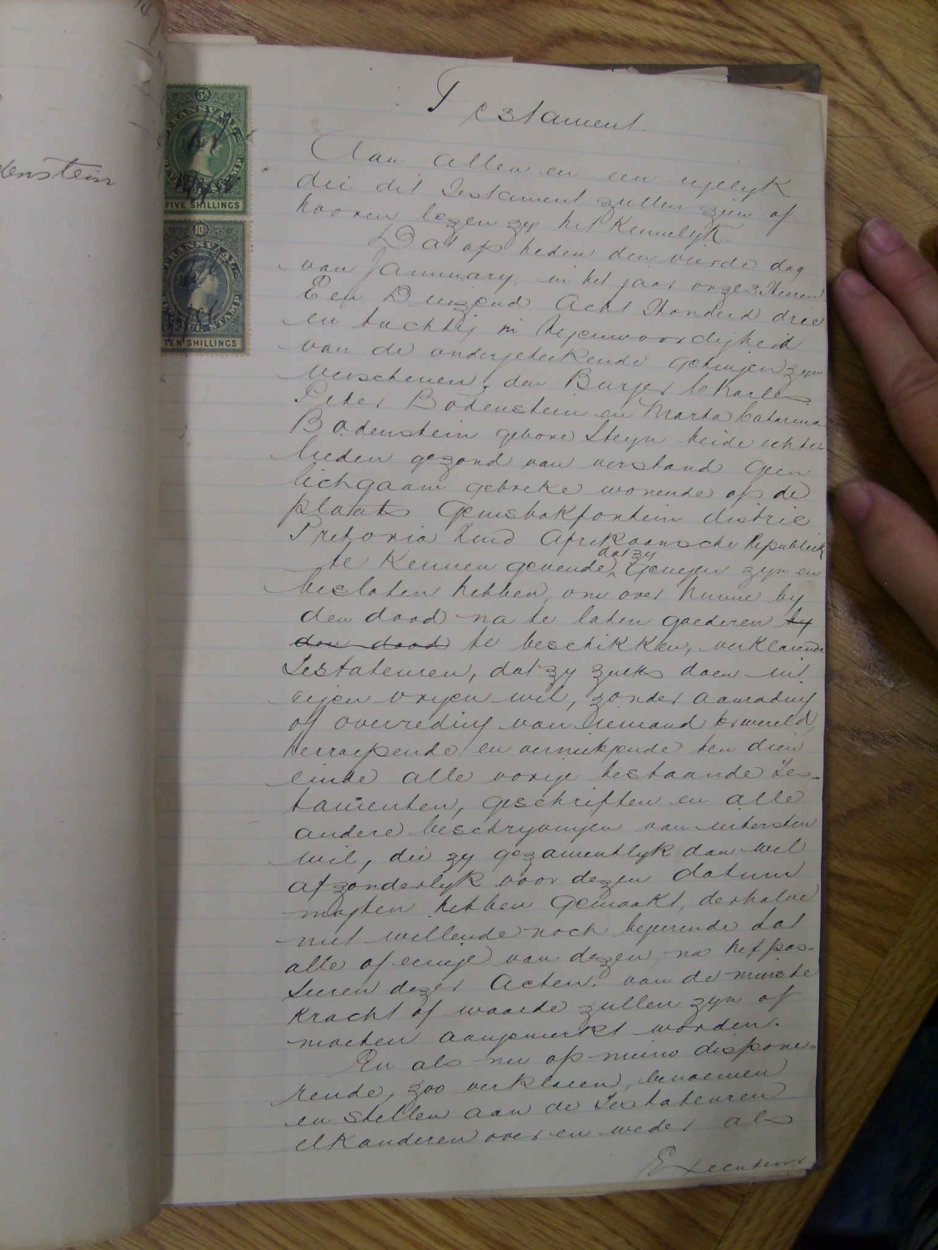 enstein
5/
TRANSVAAL
STAMP
FIVE SHILLINGS
10/
TRANSVAAL
STAMP
TEN SHILLINGS
Testament.
Aan allen en een iegelyk
die dit Testament zullen zien of
hooren lezen zy het Kennelyk.
Dat op heden den vierde dag
van January, in het jaar onzes Heeren
Een Duizend Acht Honderd drie
en tachtig in tegenwoordigheid
van de ondergeteekende getuigen zyn
verschenen, den Burger Charles
Pieter Bodenstein en Marta Catarina
Bodenstein gebore Steyn beide echte
lieden gezond van verstand geen
lichgaam gebreke wonende op de
plaats Gemsbokfontein distric
Pretoria Zuid Afrikaansche Republiek
te Kennen gevende, dat zy Genegen zyn en
besloten hebben, om over hunne by
den dood na te laten goederen by
den dood te beschikken, verklarende
Testateuren, dat zy zulks doen uit
eigen vryen wil, zonder aanrading
of overreding van iemand ter wereld,
herroepende en vernietigende ten dien
einde alle vorige bestaande Tes-
tamenten, geschriften en alle
andere beschryvingen van uitersten
wil, die zy gezamentlyk dan wel
afzonderlyk voor dezen datum
mogten hebben Gemaakt, derhalve
niet willende noch begerende dat
alle of eenige van dezen, na het pas-
seeren dezer Acten, van de minste
Kracht of waarde zullen zyn of
moeten aangemerkt worden.
En als nu op nieuw dispone-
rende, zoo verklaren, benoemen
en stellen aan de Testateuren
elkanderen over en weder als
Executeurs